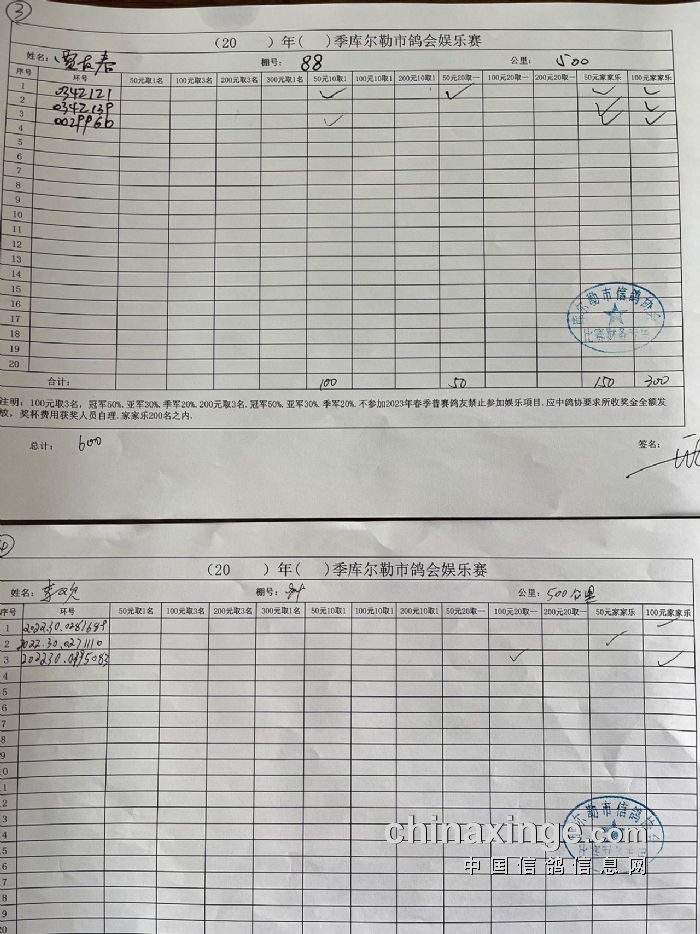 3
(20 ) 年( )季库尔勒市鸽会娱乐赛
姓名: 棚号: 88 公里: 500
序号 环号 50元取1名 100元取3名 200元取3名 300元取1名 50元10取1 100元10取1 200元10取1 50元20取一 100元20取一 200元20取一 50元家家乐 100元家家乐
1 0342121 ✓ ✓ ✓ ✓
2 0342139 ✓ ✓
3 0029960 ✓ ✓ ✓
4
5
6
7
8
9
10
11
12
13
14
15
16
17
18
19
20
库尔勒市信鸽协会
合计: 100 50 150 300
注明: 100元取3名, 冠军50%.亚军30%.季军20%.200元取3名.冠军50%.亚军30%.季军20%.不参加2023年春季普赛鸽友禁止参加娱乐项目.应中鸽协要求所收奖金全额发
放, 奖杯费用获奖人员自理.家家乐200名之内.
总计: 600 签名:
(20 ) 年( )季库尔勒市鸽会娱乐赛
姓名: 棚号: 公里: 500公里
序号 环号 50元取1名 100元取3名 200元取3名 300元取1名 50元10取1 100元10取1 200元10取1 50元20取一 100元20取一 200元20取一 50元家家乐 100元家家乐
1 ✓
2 2022.30.0271110 ✓
3 ✓ ✓
4
5
6
7
8
9
0
1
2
3
4
5
6
7
8
9
20
尔勒市信鸽协会
chinaxinge.com
中国信鸽信息网